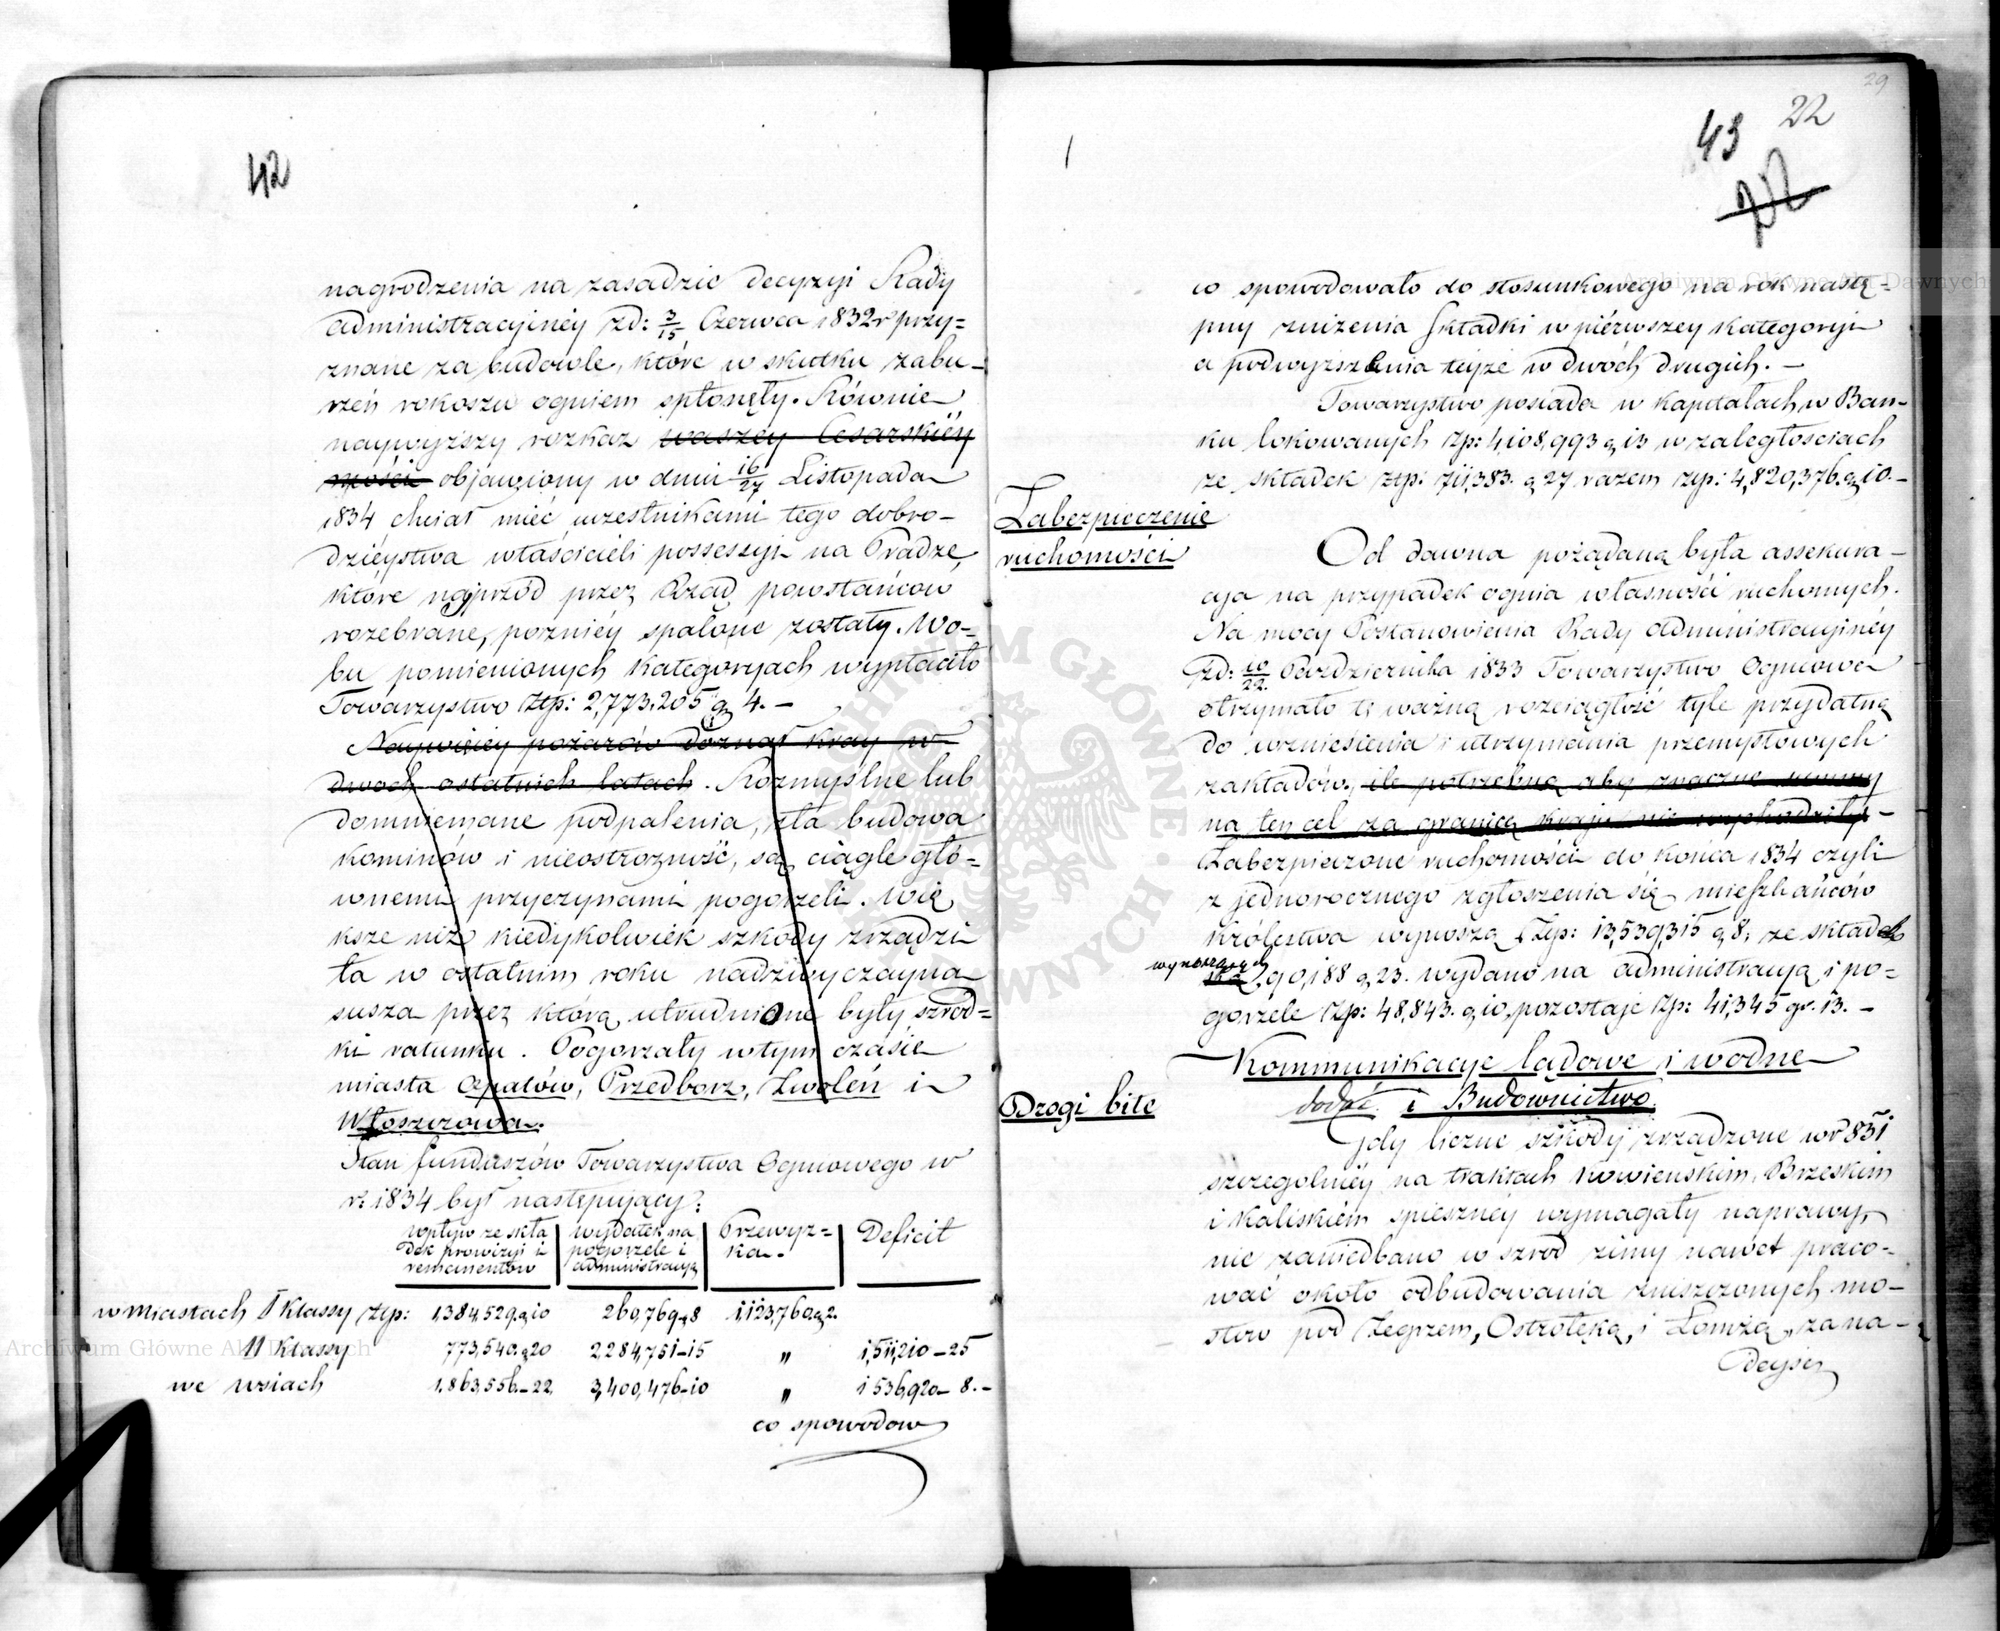 42
nagrodzenia na zasadzie decyzyi Rady
Administracyjnéy zd: 3/15 Czerwca 1832 r przy=
znane za budowle, które w skutku zabu-
rzeń rokoszu ogniem spłonęły. Równie
naywyższy rozkaz Waszéy Cesarskiéy
Mości objawiony w dniu 16/27 Listopada
1834 chciał mieć uczestnikami tego dobro-
dzieystwa właścicieli possessyi na Pradze,
które naprzód przez Rząd powstańców
rozebrane, pozniéy spalone zostały. W o-
bu pomienionych kategoryach wypłaciło
Towarzystwo Złp: 2,773,205 g 4. -
Naywięcey pożarów doznał kray w
dwóch ostatnich latach. Rozmyślne lub
domniemane podpalenia, zła budowa
kominów i nieostrożność, są ciągle głó=
wnemi przyczynami pogorzeli. Wię
ksze niż kiedykolwiek szkody zrządzi
ła w ostatnim roku nadzwyczayna
susza przez którą utrudnione były szrod=
ki ratunku. Pogorzały w tym czasie
miasta Opatów, Przedborz, Zwoleń i
Włoszczowa.
Stan funduszów Towarzystwa Ogniowego w
r. 1834 był następujący:
wpływ ze skła
dek prowizyi i
remanentów
wydatek na
pogorzele i
administracyą
Przewyz=
ka.
Deficit
w miastach I Klassy złp: 1,384,529 g 10 260,769 - 8 1,123,760 g 2.
II Klassy 773,540 g 20 2,284,751 - 15 " 1,511,210 - 25
we wsiach 1,863,556 - 22 3,400,476 - 10 " 1 536,920 - 8. -
co spowodow
29
43 22
22
co spowodowało do stosunkowego na rok nastę-
pny zniżenia składki w piérwszey kategoryi
a podwyższenia teyże w dwóch drugich. -
Towarzystwo posiada w kapitałach w Ban-
ku lokowanych złp: 4,108,993 g 13 w zaległościach
ze składek złp: 711,383. g 27 razem złp: 4,820,376. g 10. -
Zabezpieczenie
ruchomości
Od dawna pożądaną była assekura-
cya na przypadek ognia własności ruchomych.
Na mocy Postanowienia Rady Administracyinéy
zd: 10/22. Października 1833 Towarzystwo Ogniowe
otrzymało tę ważną rozciągłość tyle przydatną
do wzniesienia i utrzymania przemysłowych
zakładów, ile potrzebną aby znaczne summy
na ten cel za granicę kraju nie wychodziły -
Zabezpieczone ruchomości do końca 1834 czyli
z jednorocznego zgłoszenia się mieszkańców
Królestwa wynoszą Złp: 13,539,315 g 8; ze składek
wynoszących
90,188 g 23. wydano na administracyą i po=
gorzele Złp: 48,843. g 10, pozostaje złp: 41,345 gr. 13. -
Kommunikacye lądowe i wodne
dodać i Budownictwo.
Drogi bite
Gdy liczne szkody zrządzone w r 831
szczególniéy na traktach Kowieńskim, Brzeskim
i Kaliskiém spieszney wymagały naprawy,
nie zaniedbano w szród zimy nawet praco-
wać około odbudowania zniszczonych mo-
stów pod Zegrzem, Ostrołęką, i Łomżą, za na-
deyściem